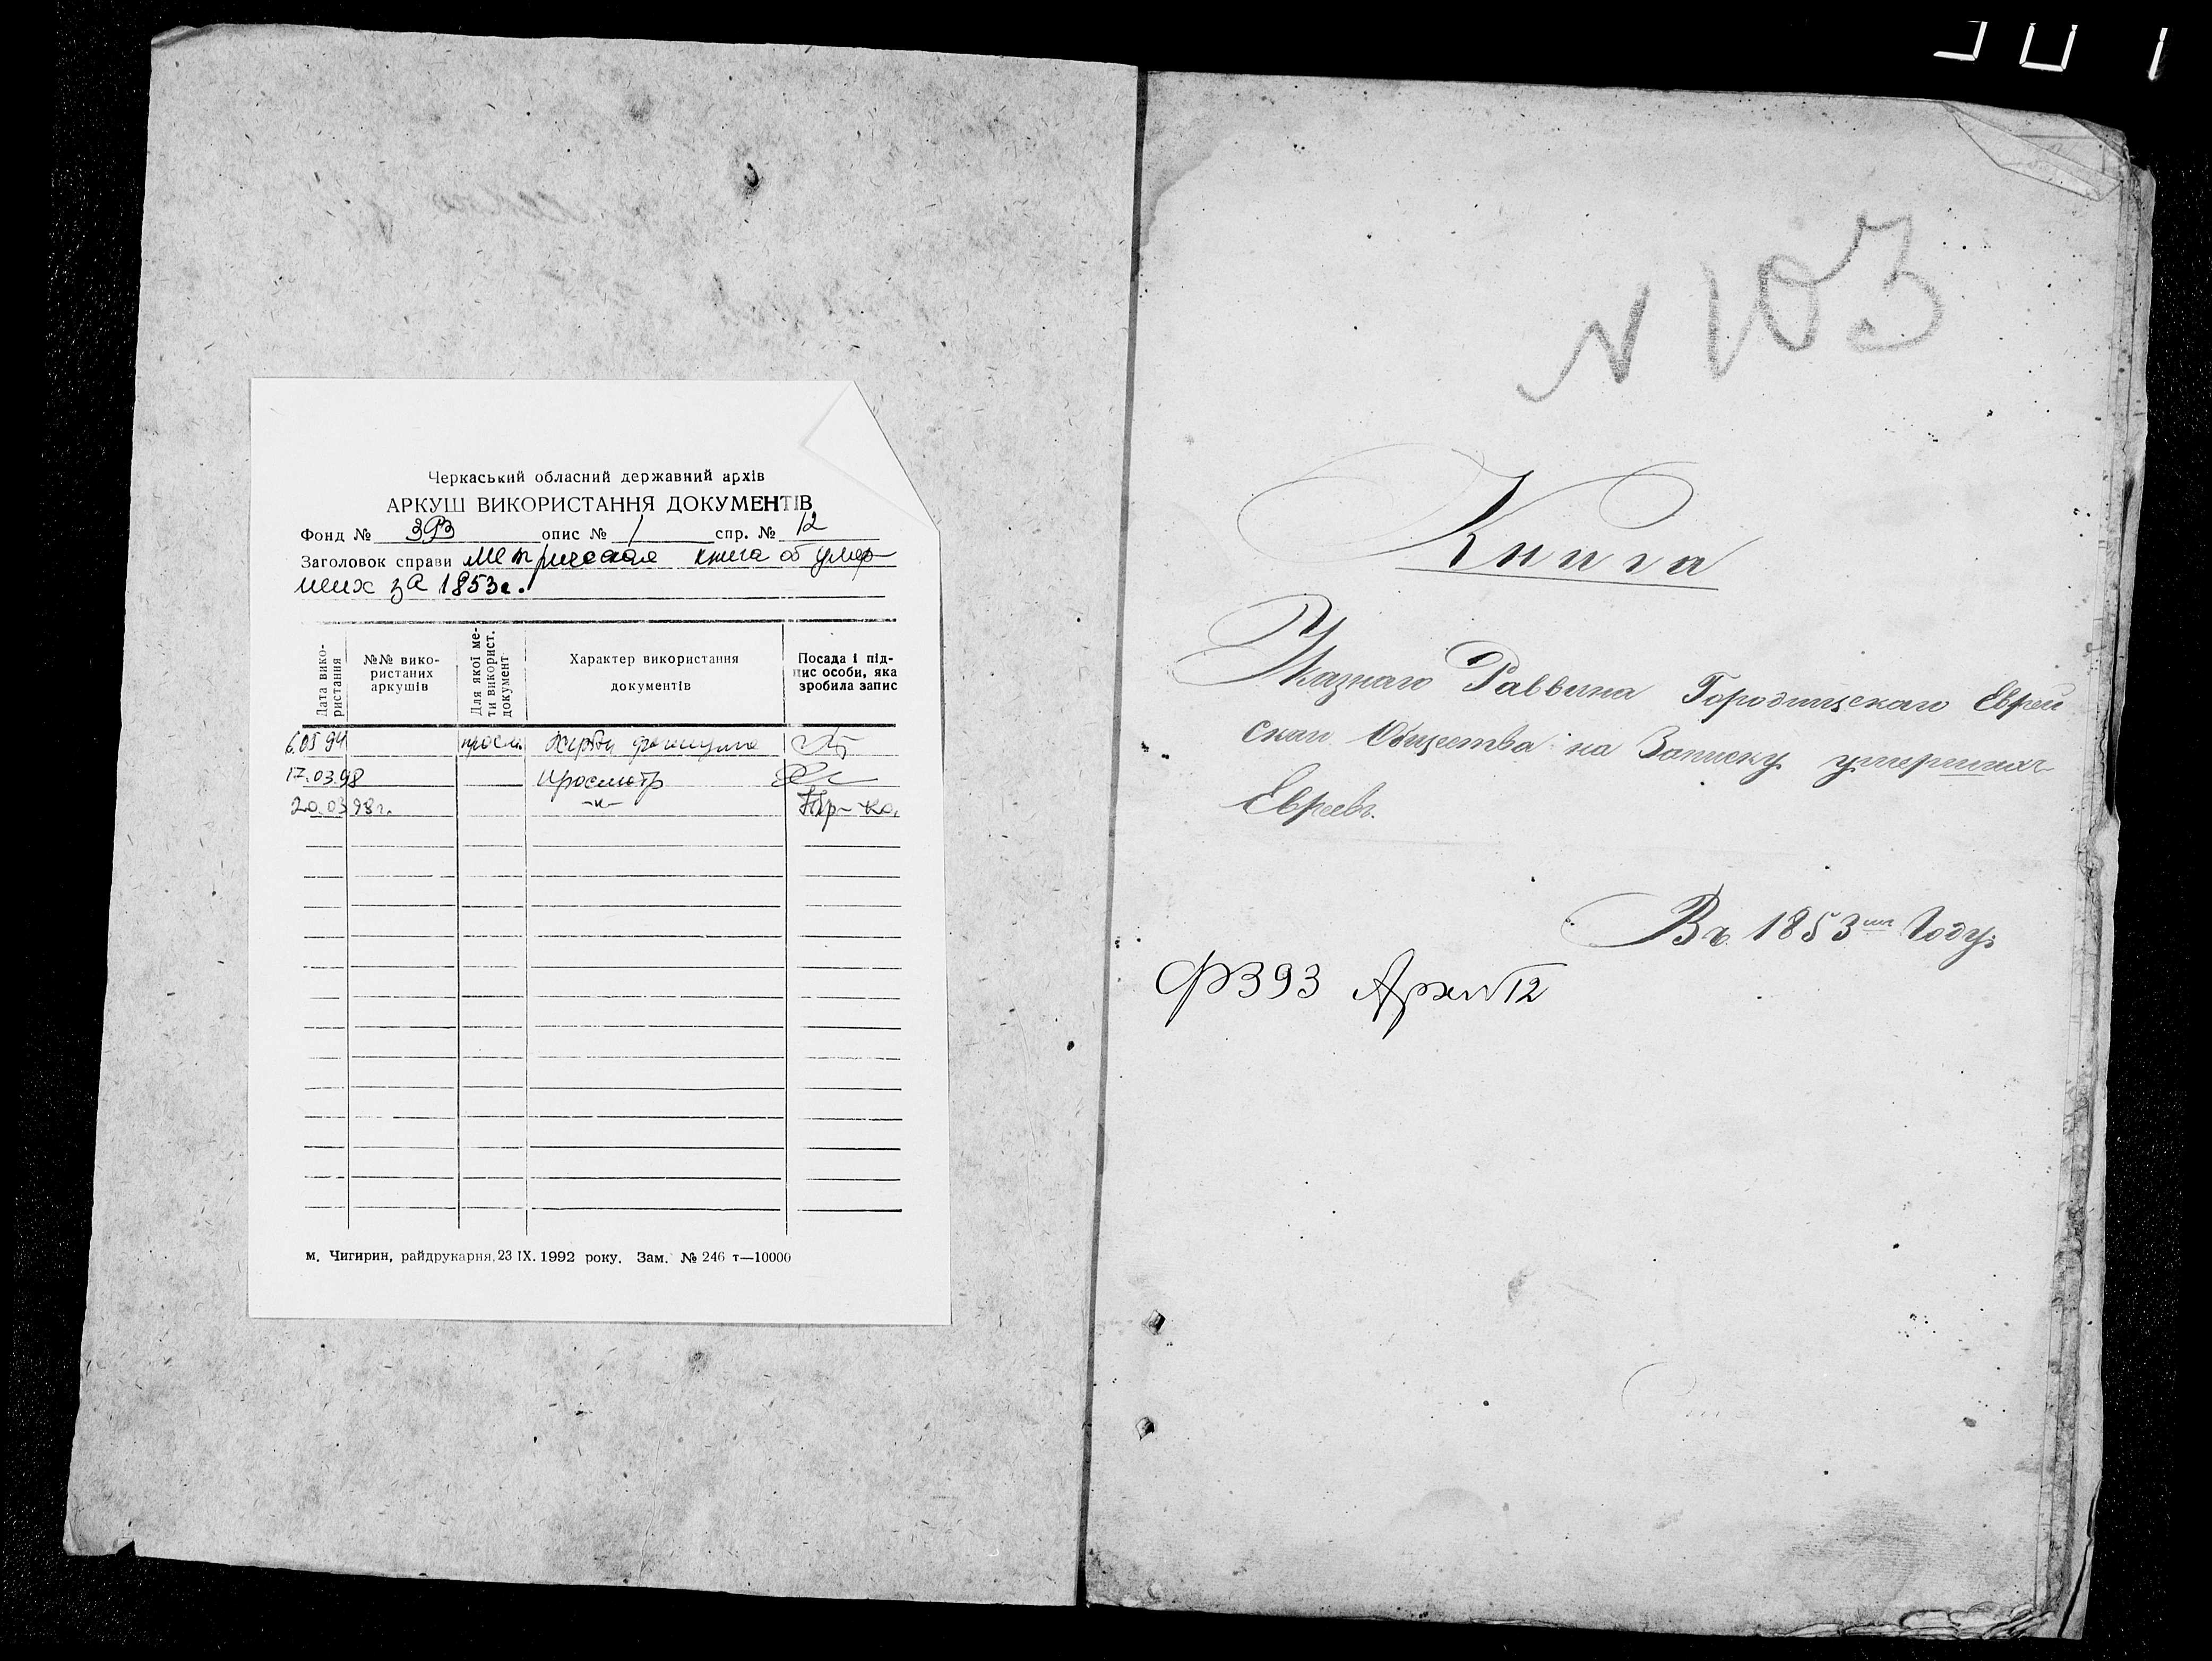 Черкаський обласний державний архів
АРКУШ ВИКОРИСТАННЯ ДОКУМЕНТІВ
Фонд № 393 опис № 1 спр. № 12
Заголовок справи Метрическая книга об умер-
ших за 1853г.
Дата вико-
ристання
№№ вико-
ристаних
аркушів
Для якої ме-
ти використ.
документ
Характер використання
документів
Посада і під-
пис особи, яка
зробила запис
6.05 94 просм.
17.03.98 просмотр
20.03 98г. -"-
м. Чигирин, райдрукарня, 23 IX. 1992 року. Зам. № 246 т—10000
N 103
Книга
Указнаго Раввина Городищскаго Еврей
скаго Общества на Записку умершихъ
Евреевъ.
Въ 1853мъ Году
Ф 393 Арх N 12